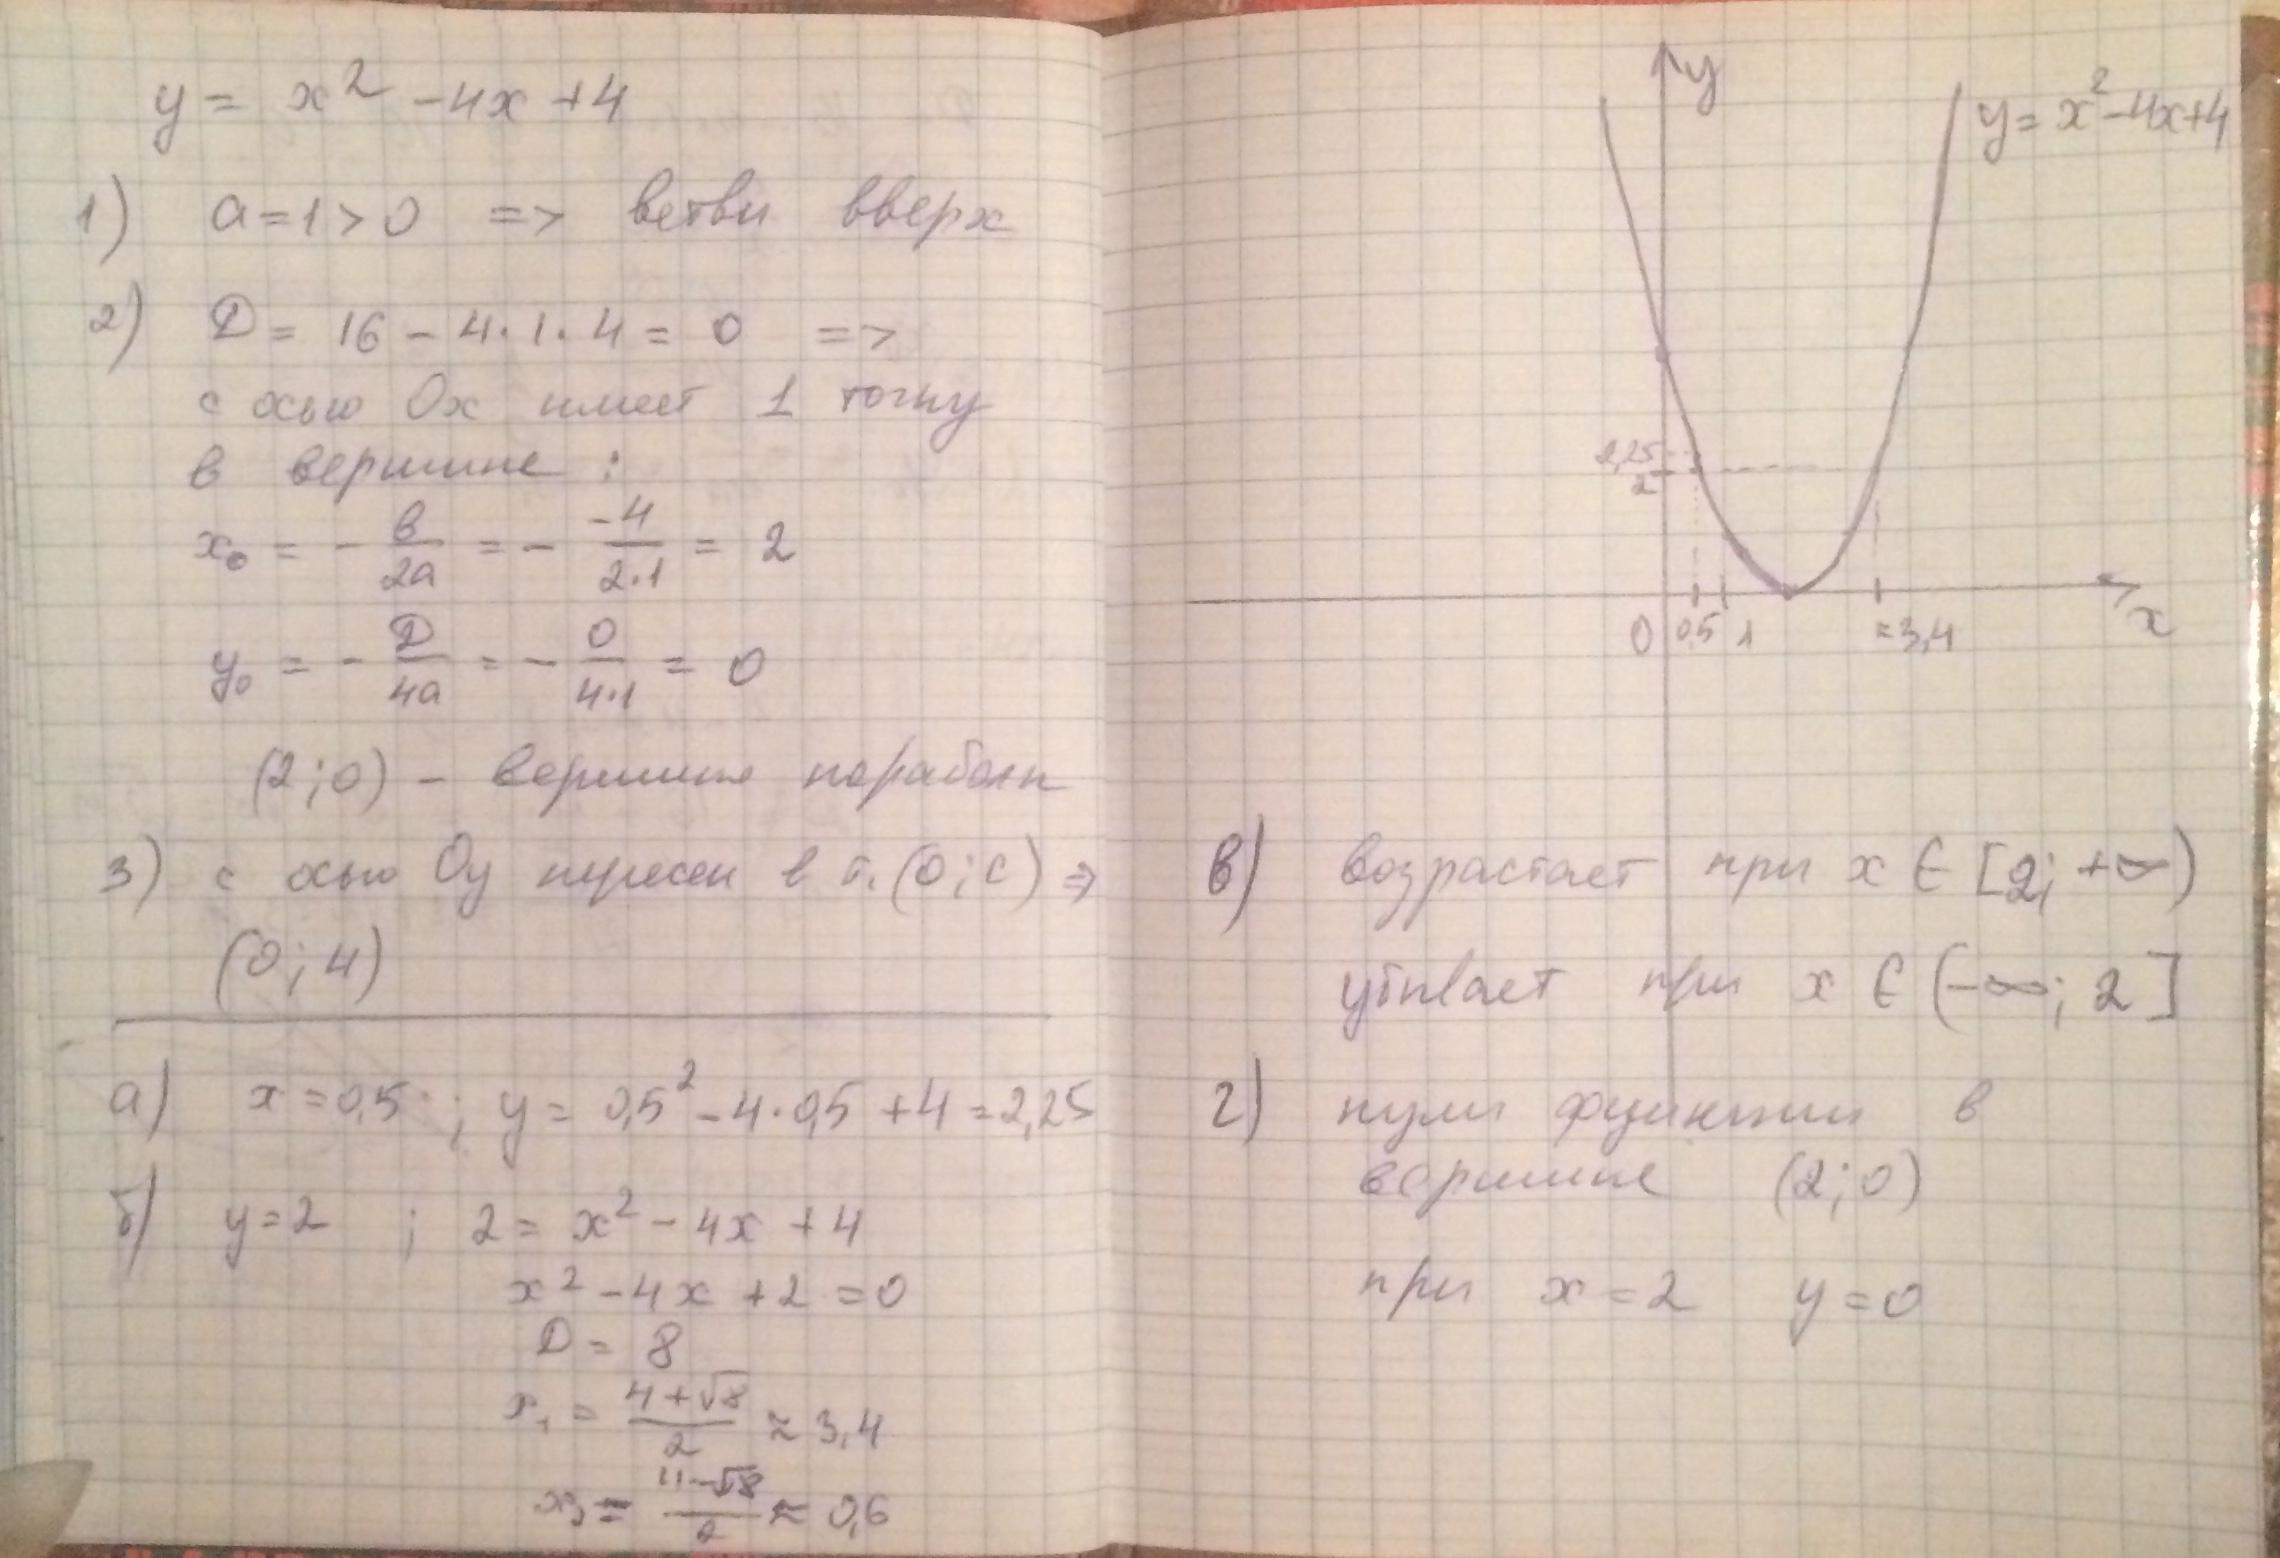 y = x² - 4x + 4
1) a = 1 > 0 => ветви вверх
2) D = 16 - 4·1·4 = 0 =>
с осью Ox имеет 1 точку
в вершине :
x₀ = - в/2a = - -4/2·1 = 2
y₀ = - D/4a = - 0/4·1 = 0
(2;0) - вершина параболы
3) с осью Oy пересек в т. (0;c) =>
(0;4)
а) x = 0,5 ; y = 0,5² - 4·0,5 + 4 = 2,25
б) y = 2 ; 2 = x² - 4x + 4
x² - 4x + 2 = 0
D = 8
x₁ = 4+√8/2 ≈ 3,4
x₂ = 4-√8/2 ≈ 0,6
y
y = x² - 4x + 4
2,25
2
0 0,5 1 ≈3,4 x
в) возрастает при x ∈ [2; +∞)
убывает при x ∈ (-∞; 2]
г) нули функции в
вершине (2;0)
при x = 2 y = 0